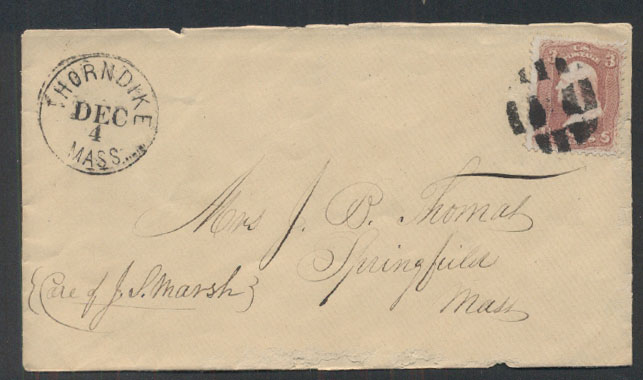 THORNDIKE
DEC
4
MASS.
3 3
Mrs J. B. Thomas
Springfield
Mass
{Care of J. S. Marsh}